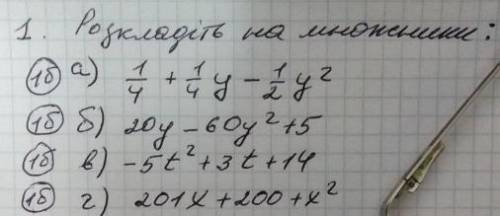 1. Розкладіть на множники:
1б а) 1/4 + 1/4 y - 1/2 y²
1б б) 20y - 60y² + 5
1б в) -5t² + 3t + 14
1б г) 201x + 200 + x²